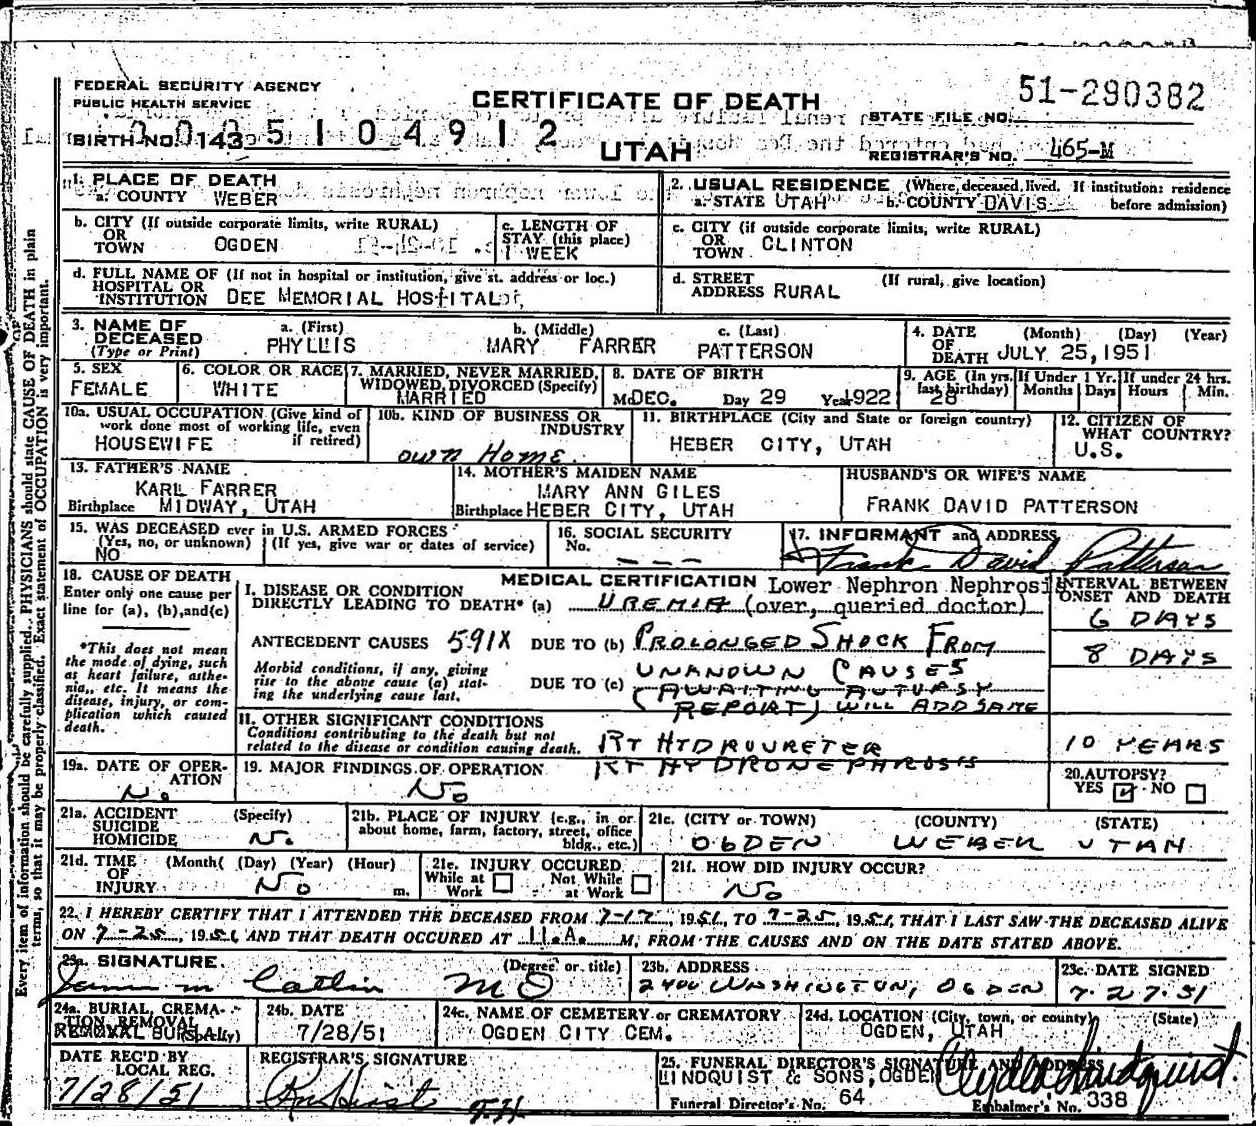 FEDERAL SECURITY AGENCY
PUBLIC HEALTH SERVICE
CERTIFICATE OF DEATH
51-290382
STATE FILE NO.
BIRTH NO. 143 5 1 0 4 9 1 2
UTAH
REGISTRAR'S NO. 465-M
1. PLACE OF DEATH
a. COUNTY WEBER
2. USUAL RESIDENCE (Where deceased lived. If institution: residence before admission)
a. STATE UTAH b. COUNTY DAVIS
b. CITY (If outside corporate limits, write RURAL)
OR TOWN OGDEN
c. LENGTH OF STAY (this place)
1 WEEK
c. CITY (if outside corporate limits, write RURAL)
OR TOWN CLINTON
d. FULL NAME OF (If not in hospital or institution, give st. address or loc.)
HOSPITAL OR INSTITUTION DEE MEMORIAL HOSPITAL
d. STREET ADDRESS RURAL (If rural, give location)
3. NAME OF DECEASED (Type or Print)
a. (First) b. (Middle) c. (Last)
PHYLLIS MARY FARRER PATTERSON
4. DATE OF DEATH (Month) (Day) (Year)
JULY 25, 1951
5. SEX
FEMALE
6. COLOR OR RACE
WHITE
7. MARRIED, NEVER MARRIED, WIDOWED, DIVORCED (Specify)
MARRIED
8. DATE OF BIRTH
Mo DEC. Day 29 Year 1922
9. AGE (In yrs. last birthday) 28
If Under 1 Yr. Months Days
If under 24 hrs. Hours Min.
10a. USUAL OCCUPATION (Give kind of work done most of working life, even if retired)
HOUSEWIFE
10b. KIND OF BUSINESS OR INDUSTRY
own Home
11. BIRTHPLACE (City and State or foreign country)
HEBER CITY, UTAH
12. CITIZEN OF WHAT COUNTRY?
U.S.
13. FATHER'S NAME
KARL FARRER
Birthplace MIDWAY, UTAH
14. MOTHER'S MAIDEN NAME
MARY ANN GILES
Birthplace HEBER CITY, UTAH
HUSBAND'S OR WIFE'S NAME
FRANK DAVID PATTERSON
15. WAS DECEASED ever in U.S. ARMED FORCES
(Yes, no, or unknown) (If yes, give war or dates of service)
NO
16. SOCIAL SECURITY No.
- - -
17. INFORMANT and ADDRESS
Frank David Patterson
18. CAUSE OF DEATH
Enter only one cause per line for (a), (b), and (c)
*This does not mean the mode of dying, such as heart failure, asthenia, etc. It means the disease, injury, or complication which caused death.
MEDICAL CERTIFICATION Lower Nephron Nephrosis
INTERVAL BETWEEN ONSET AND DEATH
I. DISEASE OR CONDITION DIRECTLY LEADING TO DEATH* (a) UREMIA (over, queried doctor)
6 DAYS
ANTECEDENT CAUSES 591X DUE TO (b) PROLONGED SHOCK FROM
8 DAYS
Morbid conditions, if any, giving rise to the above cause (a) stating the underlying cause last.
UNKNOWN CAUSES
DUE TO (c) (AWAITING AUTOPSY
REPORT) WILL ADD SAME
II. OTHER SIGNIFICANT CONDITIONS
Conditions contributing to the death but not related to the disease or condition causing death.
RT HYDROURETER
10 YEARS
RT HYDRONEPHROSIS
19a. DATE OF OPERATION
No
19. MAJOR FINDINGS OF OPERATION
No
20. AUTOPSY?
YES ☑ NO ☐
21a. ACCIDENT SUICIDE HOMICIDE (Specify)
No
21b. PLACE OF INJURY (e.g., in or about home, farm, factory, street, office bldg., etc.)
21c. (CITY or TOWN) (COUNTY) (STATE)
OGDEN WEBER UTAH
21d. TIME OF INJURY (Month) (Day) (Year) (Hour)
No m.
21e. INJURY OCCURED
While at Work ☐ Not While at Work ☐
21f. HOW DID INJURY OCCUR?
No
22. I HEREBY CERTIFY THAT I ATTENDED THE DECEASED FROM 7-17, 1951, TO 7-25, 1951, THAT I LAST SAW THE DECEASED ALIVE
ON 7-25, 1951, AND THAT DEATH OCCURED AT 11.A. M, FROM THE CAUSES AND ON THE DATE STATED ABOVE.
23a. SIGNATURE (Degree or title)
Catlin MD
23b. ADDRESS
2400 WASHINGTON, OGDEN
23c. DATE SIGNED
7.27.51
24a. BURIAL, CREMATION, REMOVAL (Specify)
24b. DATE
7/28/51
24c. NAME OF CEMETERY or CREMATORY
OGDEN CITY CEM.
24d. LOCATION (City, town, or county) (State)
OGDEN, UTAH
DATE REC'D BY LOCAL REG.
7/28/51
REGISTRAR'S SIGNATURE
25. FUNERAL DIRECTOR'S SIGNATURE AND ADDRESS
LINDQUIST & SONS, OGDEN
Clyde Lindquist
Funeral Director's No. 64
Embalmer's No. 338
Every item of information should be carefully supplied. PHYSICIANS should state CAUSE OF DEATH in plain
terms, so that it may be properly classified. Exact statement of OCCUPATION is very important.